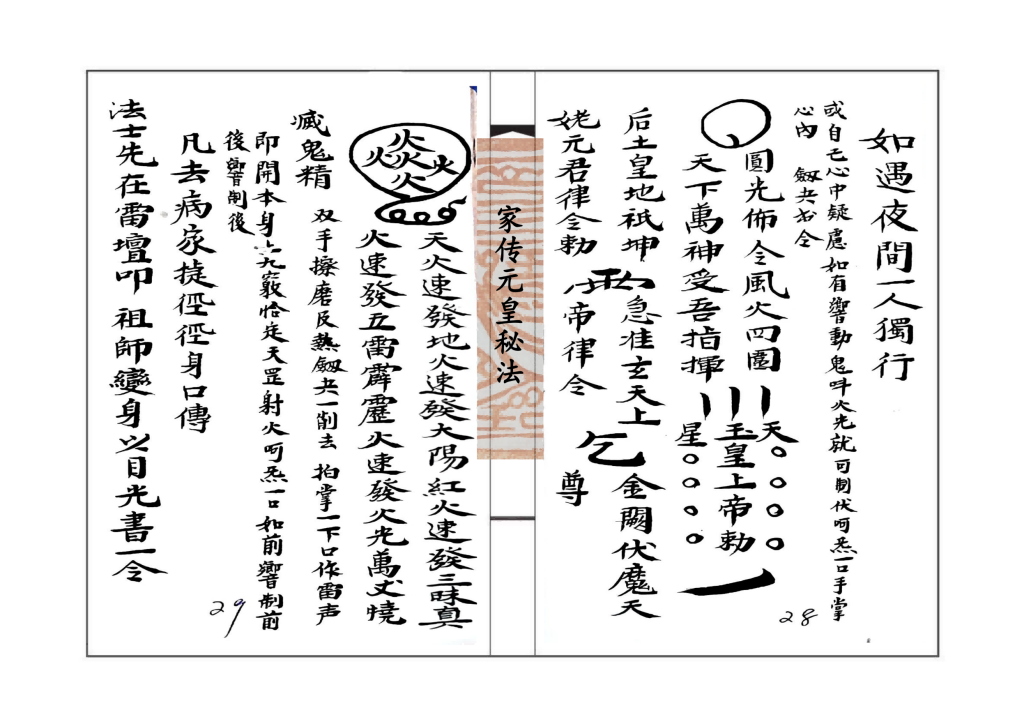 如遇夜間一人獨行
或自己心中疑慮如有響動鬼叫火光就可制伏呵炁一口手掌
心內 劔共書令
圓光佈令風火四圍
天
天下萬神受吾指揮
玉皇上帝勅
星
后土皇地祇坤
急准玄天上
金闕伏魔天
姥元君律令勅
帝律令
尊
28
家传元皇秘法
火火火火火
天火速發地火速發太陽紅火速發三昧真
火速發五雷霹靂火速發火光萬丈燒
滅鬼精
双手擦磨反熱劔共一削去 拍掌一下口作雷声
即開本身 九竅恰定天罡射火呵炁一口如前響制前
後響制後
凡去病家 徑徑身口傳
法士先在雷壇叩 祖師變身以目光書一令
29